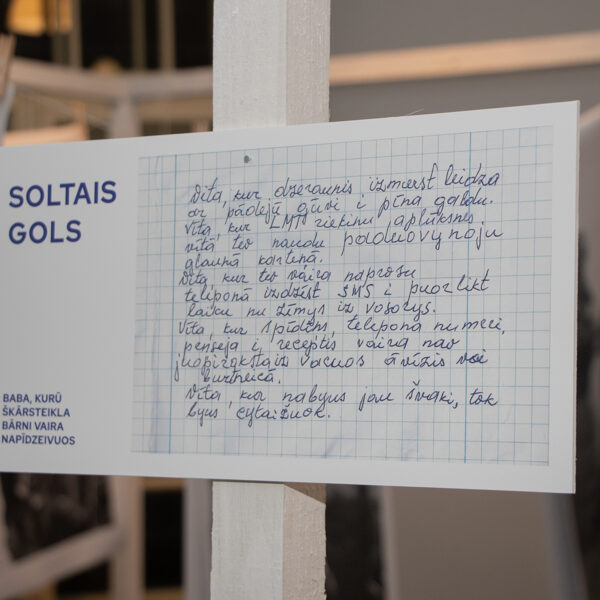 SOLTAIS
GOLS
BABA, KURŪ
ŠKĀRSTEIKLA
BĀRNI VAIRA
NAPĪDZEIVUOS
Vīta, kur dzeraunis izmerst leidza
ar pādejū gūvi i pīna galdu.
Vīta, kur LMT riekinu aplūksnē
vītā tev naudu padaiovynoju
glaunā kartenā.
Vīta, kur tev vaira naprosu
teleponā izdzēst SMS i puorlikt
laiku nu zīmys iz vosorys.
Vīta, kur spīdīns, telepona numeri,
penseja i receptis vaira nav
juopīraksta iz vacuos avīzis voi
burtneicā.
Vīta, kur nabyus jau švaki, tok
byus cytaižuok.